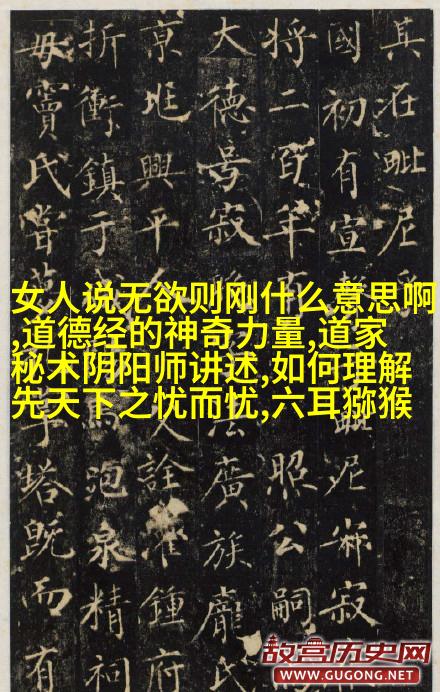 其在毗尼乎
國初有宣 尼 寂
將二百年而 照公嗣
大德号寂 廣族龐氏
京兆興平人 父詮 鍾府
折衝鎮于 泡泉精祠
毋竇氏嘗 于塔既而有
女人说无欲则刚什么意思啊
,道德经的神奇力量,道家
秘术阴阳师讲述,如何理解
先天下之忧而忧,六耳猕猴
故宫历史网
WWW.GUGONG.NET